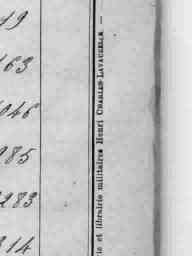 49
163
046
985
283
314
ie et librairie militaires Henri CHARLES-LAVAUZELLE. —